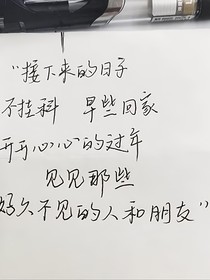 “接下来的日子
不挂科 早些回家
开开心心的过年
见见那些
好久不见的人和朋友”